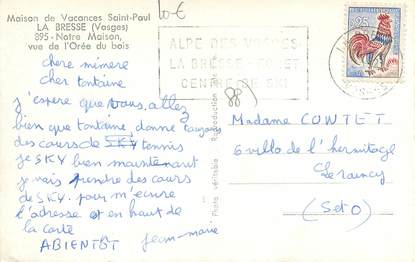 Maison de Vacances Saint-Paul
LA BRESSE (Vosges)
895 - Notre Maison,
vue de l'Orée du bois
10 €
ALPE DES VOSGES
LA BRESSE - HOHNECK
CENTRE DE SKI
25
88
chere mémere
cher tontaine
j'espere que vous, allez
bien que tontaine, donne toujours
des cours de SKY tennis
je SKY bien maintenant
je vais prendre des cours
de SKY. pour m'ecrire
l'adresse et en haut de
la carte
ABIENTÔT Jean-marie
Photo véritable Reproduction
Madame COWTET
6 villa de l'hermitage
Le raincy
(Set O)